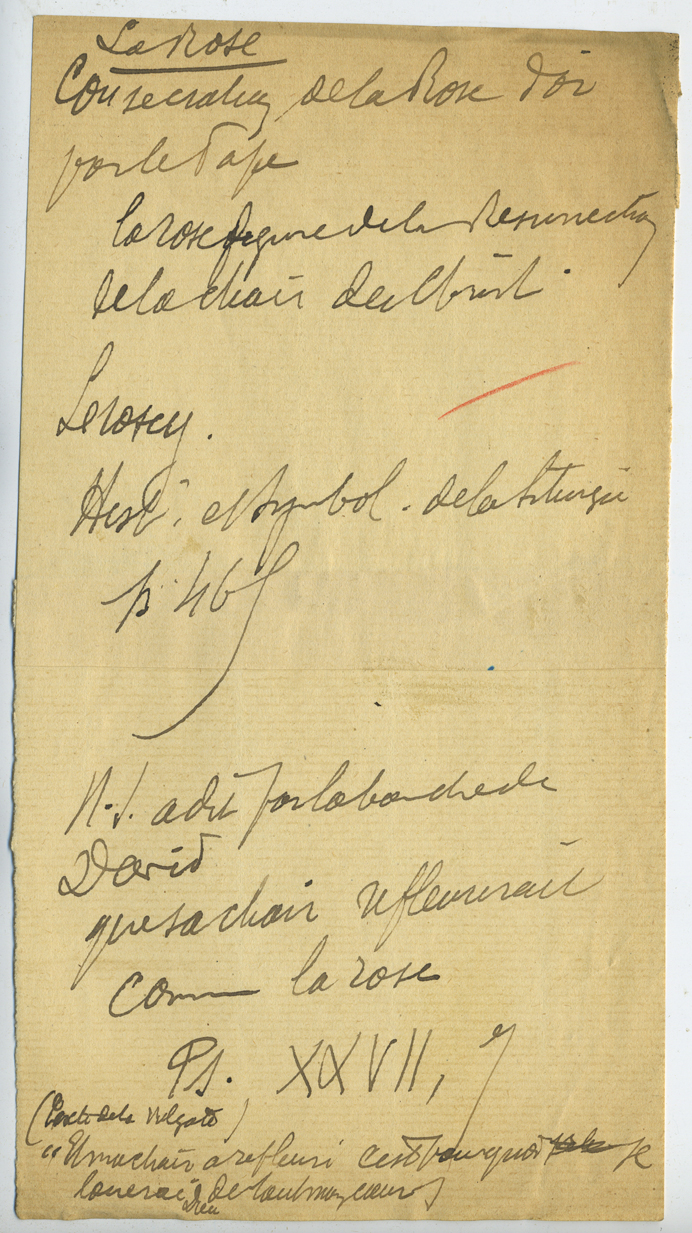 La Rose
Consecration de la Rose d'or
par le Pape
la rose figure de la Resurrection
de la chair du Christ.
Lerosey.
Hist. et Symbol. de la Liturgie
p. 46
N.S. a dit par la bouche de
David
que sa chair refleurirait
comme la rose
Ps. XXVII, 7
(Texte de la Vulgate)
"Et ma chair a refleuri c'est pourquoi je
louerai Dieu de tout mon coeur"